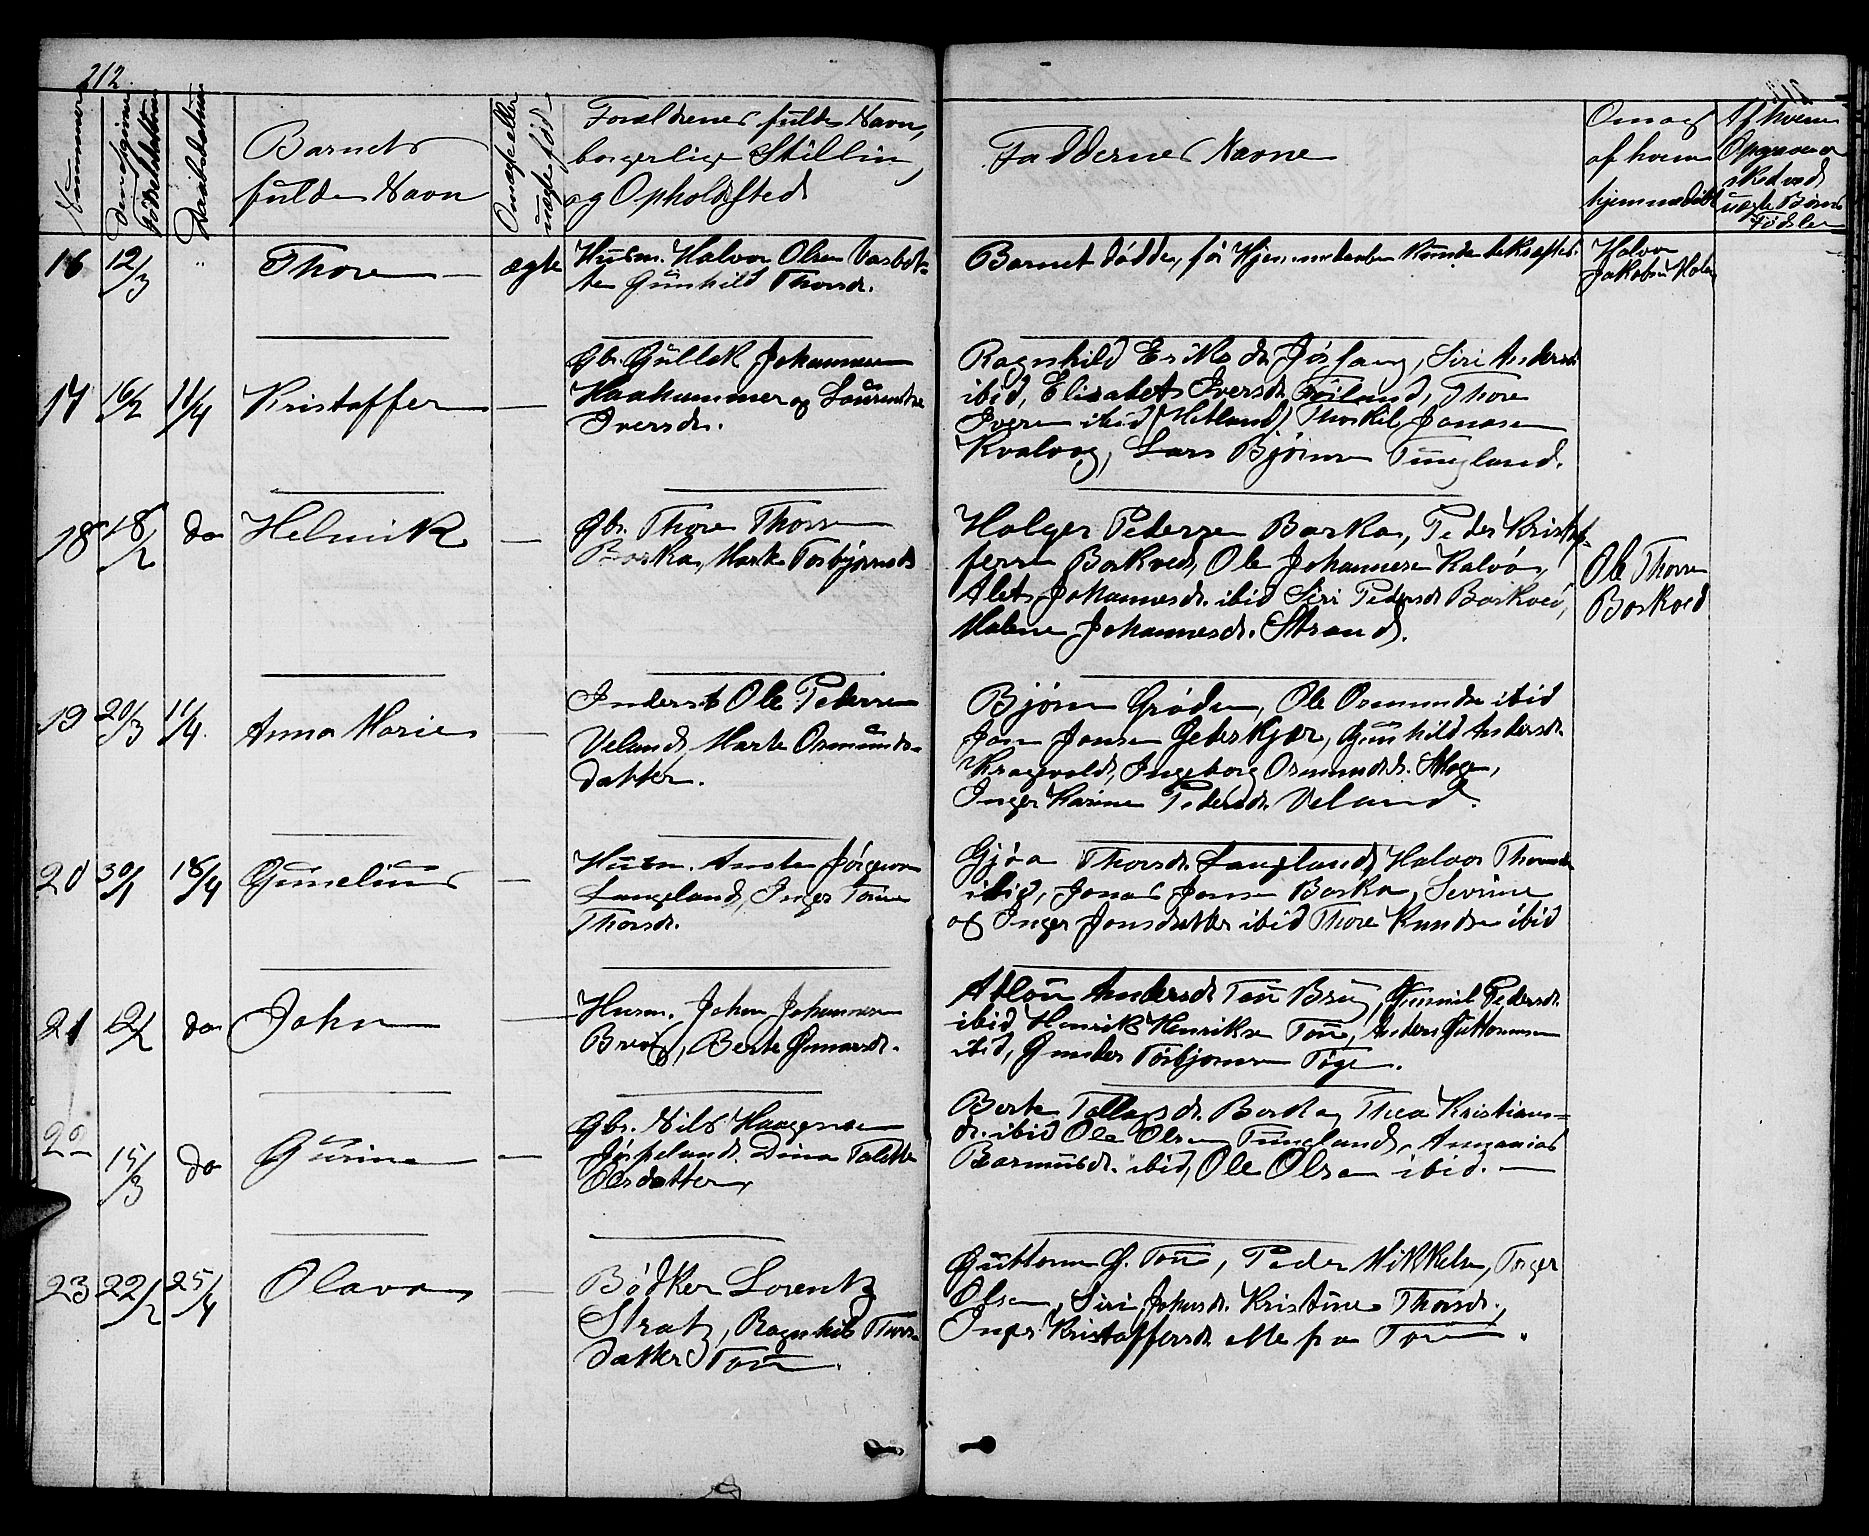 212
Nummer
Dens samme Fødselsdatum
Daabsdatum
Barnets
fulde Navn
Om ægte eller
uægte fød
Forældrenes fulde Navn,
borgerlige Stilling
og Opholdssted
Faddernes Navne
Om og
af hvem
hjemmedøbt
Af hvem
Opgaven er
sked ved
uægte Børns
Fødsler
16 12/3 " Thore ægte
Husm. Halvor Olsen
Gunhild Thorsd.
Barnet døde, før Hjemmedaaben kunde bekræftes.
Halvor
Jakobsen
17 16/2 11/4 Kristoffer —
Gbr. Gullek Johannesen
Haahammer og Laurentse
Iversd.
Ragnhild Eriksd. Jøsang, Siri Andersd.
ibid, Elisabet Iversd. Foiland, Thore
Iversen ibid (Hetland) Thorkil Jonasen
Kvalvog, Lars Bjørnsen Tungland.
18 18/2 do Helmik —
Gbr. Thore Thorsen
Barka, Marte Torbjørnsd.
Holger Pedersen Barka, Peder Kristof-
fersen Barkved, Ole Johannesen Kalvø,
Alet Johannesd. ibid Siri Pedersd. Barkved,
Malene Johannesd. Strand.
Ole Thorsen
Barkved
19 20/3 11/4 Anna Marie —
Inderst Ole Pedersen
Veland, Marte Osmunds-
datter.
Bjørn Grøden, Ole Osmundsen ibid
Jon Jonsen Gederskjær, Gunhild Andersd.
Kragevold, Ingeborg Osmundsd.
Inger Karine Pedersd. Veland.
20 30/1 18/4 Gunelius —
Husm. Jørgensen
Langeland, Inger Torine
Thorsd.
Gjøa Thorsd. Langeland, Halvor Thorsen
ibid, Jonas Jonsen Barka, Severine
og Inger Jonsdatter ibid Thore Knudsen ibid
21 12/2 do John —
Husm. John Johannesen
Berte Gunarsd.
Andersd. Tou Pedersd.
ibid, Henrik Henriksen Tou, Anders Guttormsen
ibid, Gunder Torbjørnsen
22 15/3 do Gurine —
Gbr. Nils Haagensen
Jøspeland. Dina Talette
Olsdatter
Berte Tollagsd. Thea Kristians-
d. ibid Ole Olsen Tungland,
Rasmusd. ibid, Ole Olsen ibid. —
23 22/2 25/4 Olava —
Bødker Lorentz
Stratz, Ragnhild Thors-
datter Tou.
Guttorm G. Tou, Peder Mikkelsen, Torger
Olsen, Siri Johnsd. Kristine Thorsd.,
Inger Kristoffersd. alle fra Tou.